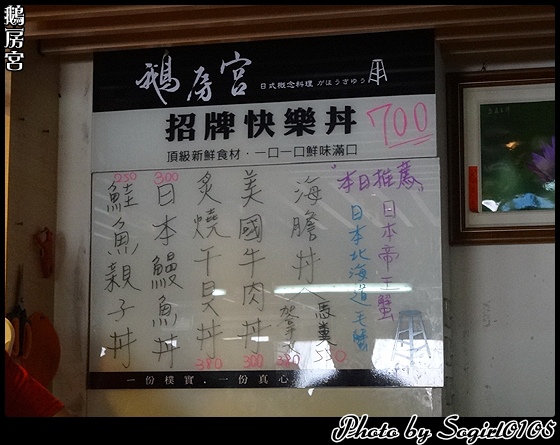 鵝房宮
鵝房宮
日式概念料理 がほうきゅう
招牌快樂丼
700
頂級新鮮食材．一口一口鮮味滿口
"本日推薦"
日本帝王蟹
日本北海道毛蟹
海膽丼
馬糞
380
美國牛肉丼
300
炙燒干貝丼
380
300
日本鰻魚丼
250
鮭魚親子丼
一份樸實．一份真心
Photo by Sagirl0108